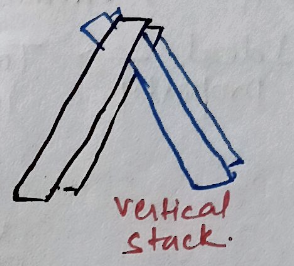 vertical
stack.